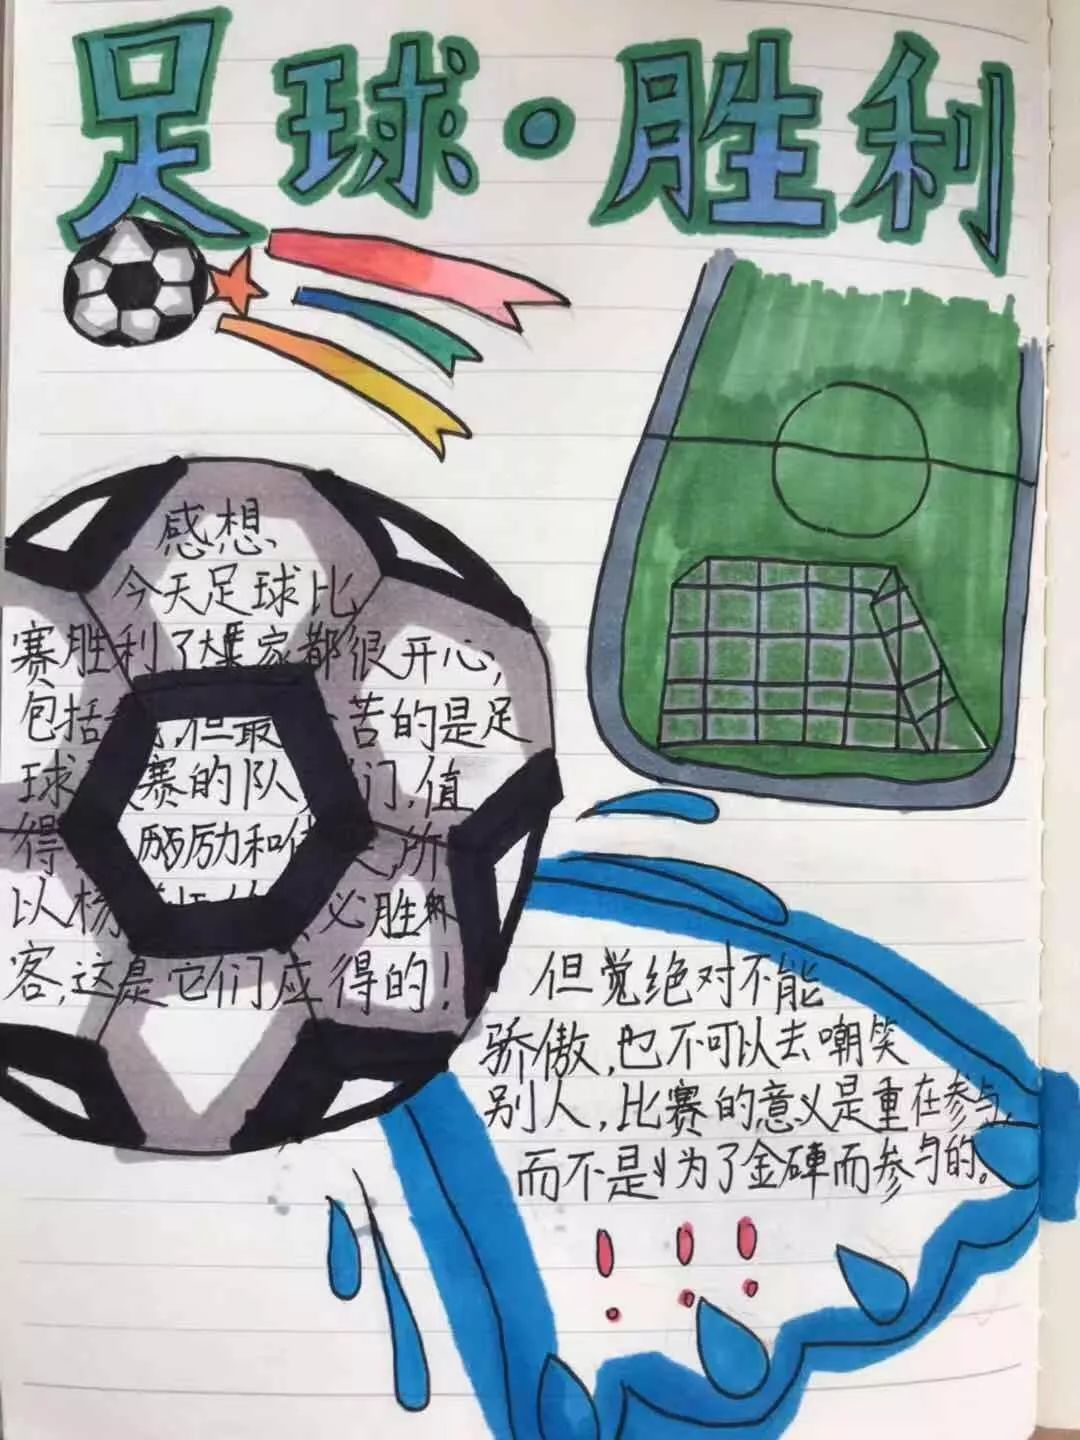 足球·胜利
感想
今天足球比
赛胜利了大家都很开心,
包括,但最苦的是足
球赛的队们,值
得励和,所
以必胜
客,这是它们应得的!
但觉绝对不能
骄傲,也不可以去嘲笑
别人,比赛的意义是重在参与,
而不是为了金碑而参与的。
!!!